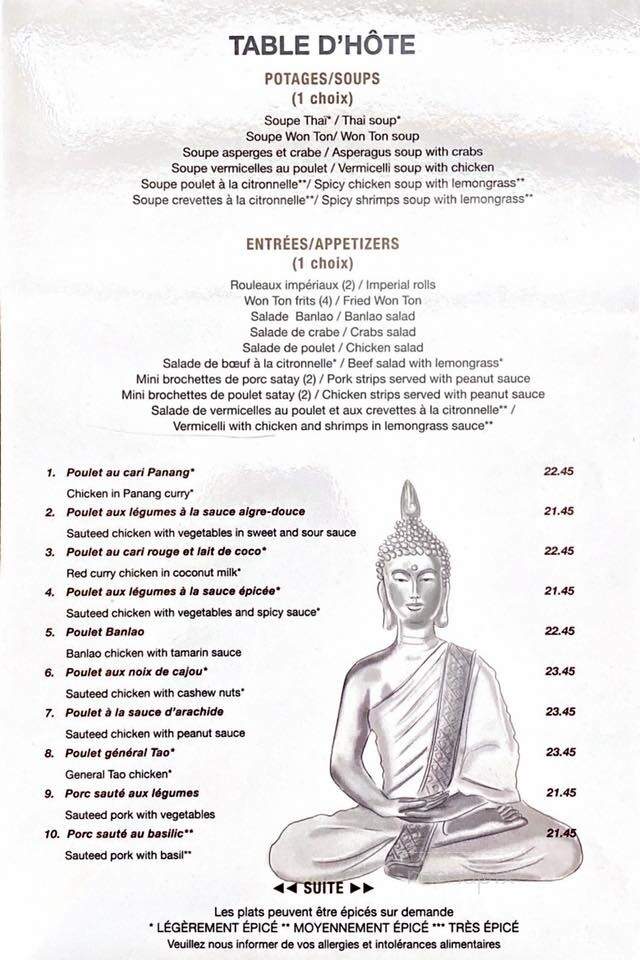 TABLE D'HÔTE
POTAGES/SOUPS
(1 choix)
Soupe Thaï* / Thai soup*
Soupe Won Ton/ Won Ton soup
Soupe asperges et crabe / Asperagus soup with crabs
Soupe vermicelles au poulet / Vermicelli soup with chicken
Soupe poulet à la citronnelle**/ Spicy chicken soup with lemongrass**
Soupe crevettes à la citronnelle**/ Spicy shrimps soup with lemongrass**
ENTRÉES/APPETIZERS
(1 choix)
Rouleaux impériaux (2) / Imperial rolls
Won Ton frits (4) / Fried Won Ton
Salade Banlao / Banlao salad
Salade de crabe / Crabs salad
Salade de poulet / Chicken salad
Salade de bœuf à la citronnelle* / Beef salad with lemongrass*
Mini brochettes de porc satay (2) / Pork strips served with peanut sauce
Mini brochettes de poulet satay (2) / Chicken strips served with peanut sauce
Salade de vermicelles au poulet et aux crevettes à la citronnelle** /
Vermicelli with chicken and shrimps in lemongrass sauce**
1. Poulet au cari Panang* 22.45
Chicken in Panang curry*
2. Poulet aux légumes à la sauce aigre-douce 21.45
Sauteed chicken with vegetables in sweet and sour sauce
3. Poulet au cari rouge et lait de coco* 22.45
Red curry chicken in coconut milk*
4. Poulet aux légumes à la sauce épicée* 21.45
Sauteed chicken with vegetables and spicy sauce*
5. Poulet Banlao 22.45
Banlao chicken with tamarin sauce
6. Poulet aux noix de cajou* 23.45
Sauteed chicken with cashew nuts*
7. Poulet à la sauce d'arachide 23.45
Sauteed chicken with peanut sauce
8. Poulet général Tao* 23.45
General Tao chicken*
9. Porc sauté aux légumes 21.45
Sauteed pork with vegetables
10. Porc sauté au basilic** 21.45
Sauteed pork with basil**
◄◄ SUITE ►►
Les plats peuvent être épicés sur demande
* LÉGÈREMENT ÉPICÉ ** MOYENNEMENT ÉPICÉ *** TRÈS ÉPICÉ
Veuillez nous informer de vos allergies et intolérances alimentaires